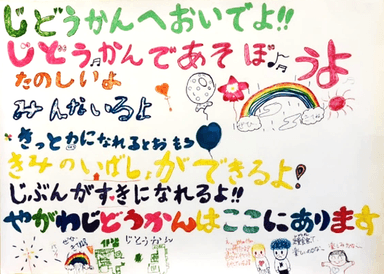 じどうかんへおいでよ!!
じどうかんであそぼうよ
たのしいよ
みんないるよ
きみのいばしょができるよ!
じぶんがすきになれるよ!!
やがわじどうかんはここにあります
じどうかん